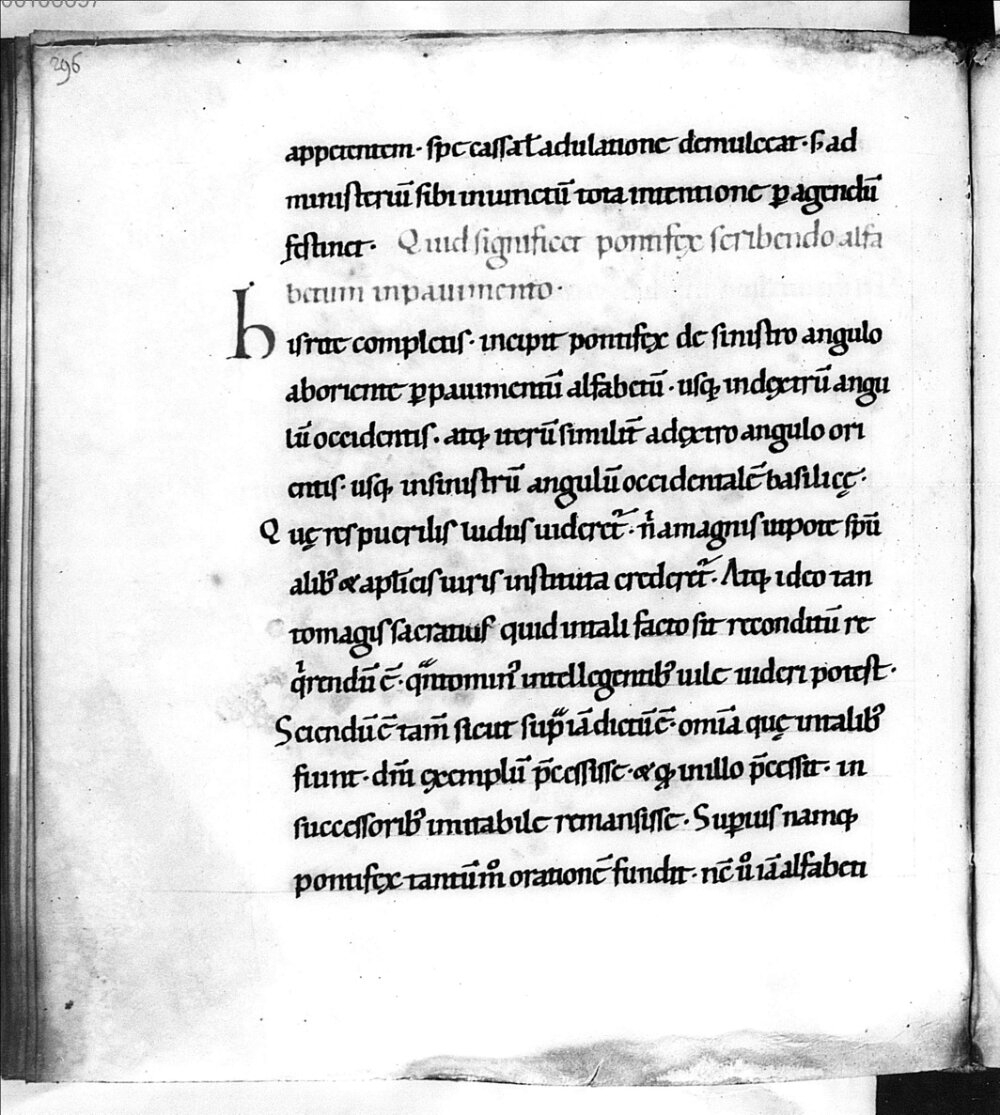 296
appetentem · spe cassat̄ adulatione demulceat · s; ad
ministeriū sibi iniunctū tota intentione ꝑagendū
festinet · Quid significet pontifęx scribendo alfa
betum in pauimento ·
hıs rite completis · incipit pontifęx de sinistro angulo
ab oriente ꝑ pauimentū alfabetū · usq; in dęxtrū angu
lū occidentis · atq; iterū similit̄ a dęxtro angulo ori
entis · usq; in sinistrū angulū occidentalē basilicę ·
Quę res puerilis ludus uideret᷑ · nͥ a magnis utpote sp̄u
alib᷒ & apl̄icis uiris instituta crederet᷑ · Atq; ideo tan
to magis sacratius quid in tali facto sit reconditū re
qͥrendū ē · qͣnto minꝰ intellegentib᷒ uile uideri potest ·
Sciendū ē tam̄ sicut supͣ iā dictū ē · om̄ia quę in talib᷒
fiunt · dn̄i exemplū p̄cessisse · & qd̄ in illo p̄cessit · in
successorib᷒ imitabile remansisse · Supius namq;
pontifęx tantūm̊ orationē fundit · nc̄ ů iā alfabeti